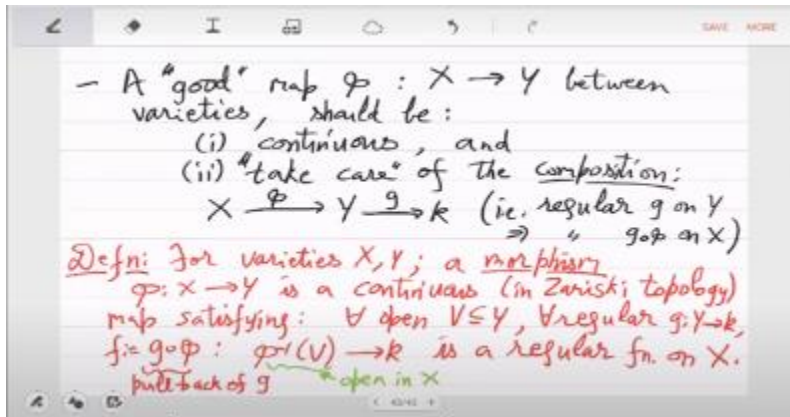 SAVE MORE
- A "good" map φ : X → Y between
varieties, should be :
(i) continuous, and
(ii) "take care" of the composition:
X —φ→ Y —g→ k (ie. regular g on Y
⇒ " g∘φ on X)
Defn: For varieties X, Y; a morphism
φ: X → Y is a continuous (in Zariski topology)
map satisfying: ∀ open V ⊆ Y, ∀ regular g: Y→k,
f := g∘φ : φ⁻¹(V) → k is a regular fn. on X.
pullback of g open in X